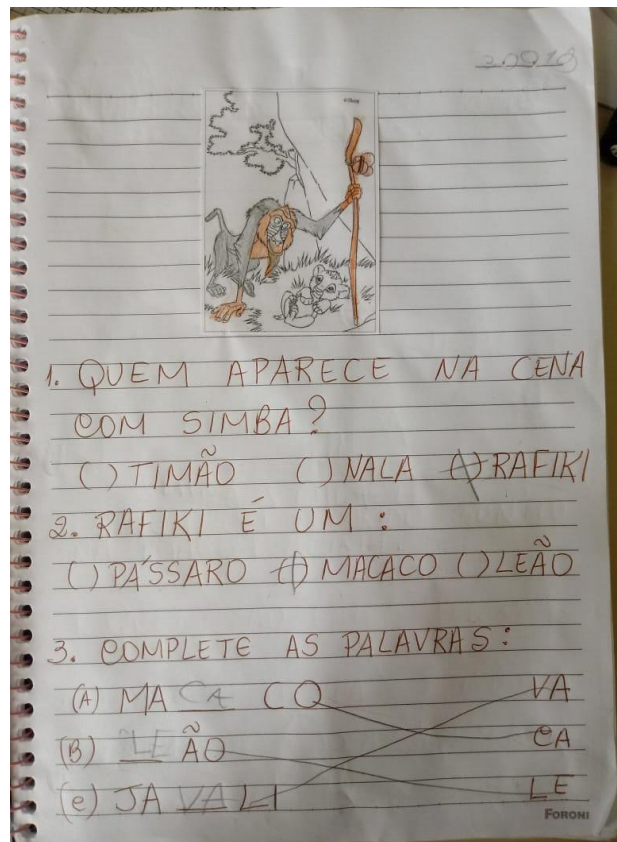 1. QUEM APARECE NA CENA
COM SIMBA?
( ) TIMÃO ( ) NALA (X) RAFIKI
2. RAFIKI É UM :
( ) PÁSSARO (+) MACACO ( ) LEÃO
3. COMPLETE AS PALAVRAS:
(A) MA CA CO VA
(B) LE ÃO CA
(C) JA VA LI LE
FORONI